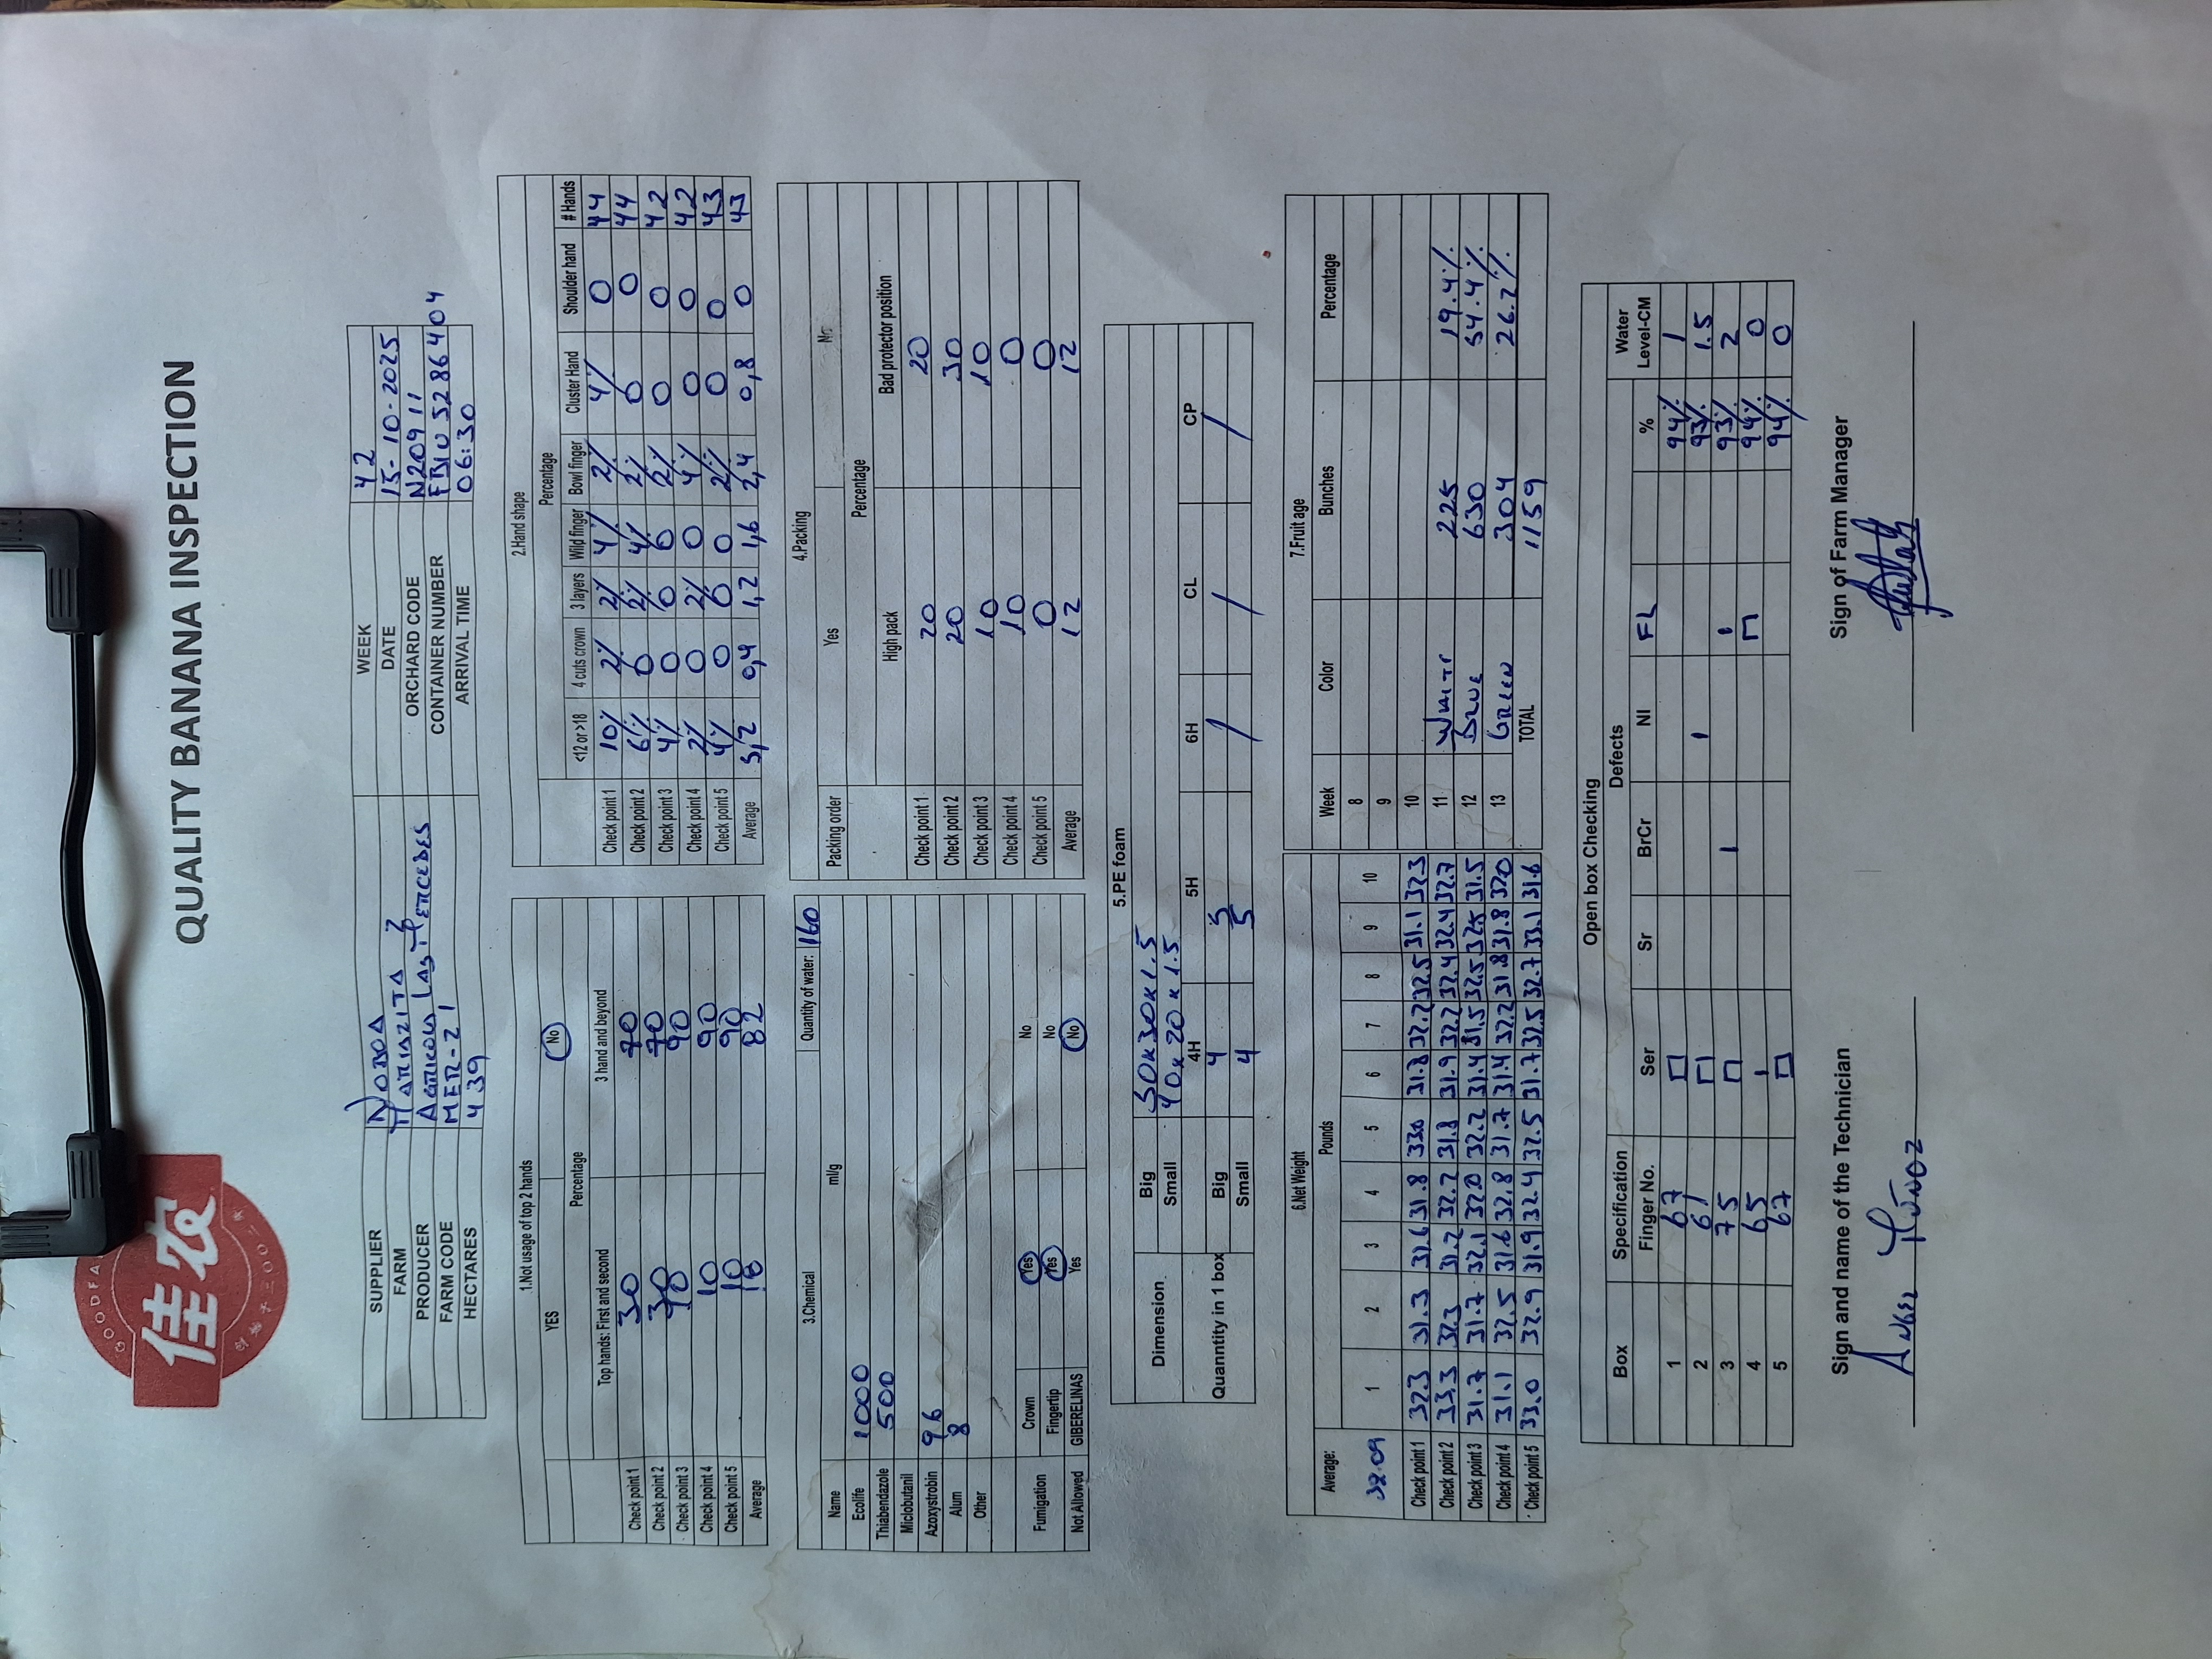 GOODFA
佳农
创始于二〇〇二年
QUALITY BANANA INSPECTION
SUPPLIER NOBOA WEEK 42
FARM MARIAZITA 2 DATE 15-10-2025
PRODUCER AGRICOLA LAS MERCEDES ORCHARD CODE N20911
FARM CODE MER-21 CONTAINER NUMBER FBIU 5286404
HECTARES 439 ARRIVAL TIME 06:30
1.Not usage of top 2 hands
YES No
Percentage
Top hands: First and second 3 hand and beyond
Check point 1 30 70
Check point 2 30 70
Check point 3 10 90
Check point 4 10 90
Check point 5 10 90
Average 18 82
2.Hand shape
Percentage
<12 or >18 4 cuts crown 3 layers Wild finger Bowl finger Cluster Hand Shoulder hand # Hands
Check point 1 10% 2% 2% 4% 2% 4% 0 44
Check point 2 6% 0 2% 4% 2% 0 0 44
Check point 3 4% 0 0 0 2% 0 0 42
Check point 4 2% 0 2% 0 4% 0 0 42
Check point 5 4% 0 0 0 2% 0 0 43
Average 5,2 0,4 1,2 1,6 2,4 0,8 0 43
3.Chemical Quantity of water: 160
Name ml/g
Ecolife 1000
Thiabendazole 500
Miclobutanil
Azoxystrobin 96
Alum 8
Other
Fumigation Crown Yes No
Fingertip Yes No
Not Allowed GIBERELINAS Yes No
4.Packing
Packing order Yes No
Percentage
High pack Bad protector position
Check point 1 20 20
Check point 2 20 30
Check point 3 10 10
Check point 4 10 0
Check point 5 0 0
Average 12 12
5.PE foam
Dimension Big 50x30x1.5
Small 40x20x1.5
4H 5H 6H CL CP
Quanntity in 1 box Big 4 5 / / /
Small 4 5
6.Net Weight
Average: Pounds
32.09 1 2 3 4 5 6 7 8 9 10
Check point 1 32.3 31.3 31.6 31.8 33.0 31.8 32.2 32.5 31.1 32.3
Check point 2 33.3 32.3 31.2 32.2 31.8 31.9 32.2 32.4 32.4 32.7
Check point 3 31.7 31.7 32.1 32.0 32.2 31.4 31.5 32.5 32.5 31.5
Check point 4 31.1 32.5 31.6 32.8 31.7 31.4 32.2 31.8 31.8 32.0
Check point 5 33.0 32.9 31.9 32.4 32.5 31.7 32.5 32.7 33.1 31.6
7.Fruit age
Week Color Bunches Percentage
8
9
10
11 WHITE 225 19.4%
12 BLUE 630 54.4%
13 GREEN 304 26.2%
TOTAL 1159
Open box Checking
Box Specification Defects Water
Finger No. Ser Sr BrCr NI FL % Level-CM
1 67 94% 1
2 61 I 93% 1.5
3 75 I I 93% 2
4 65 I 94% 0
5 67 94% 0
Sign and name of the Technician Sign of Farm Manager
ANGEL MUÑOZ